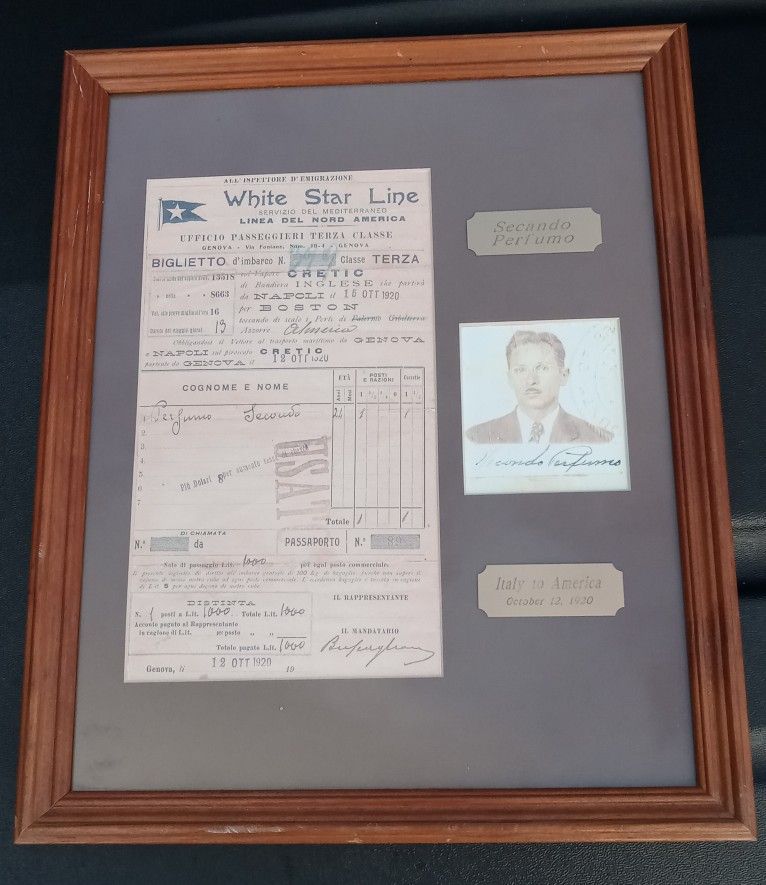 ALL'ISPETTORE D'EMIGRAZIONE
White Star Line
SERVIZIO DEL MEDITERRANEO
LINEA DEL NORD AMERICA
UFFICIO PASSEGGIERI TERZA CLASSE
GENOVA - Via Fontane, Num. 10-4 - GENOVA
BIGLIETTO d'imbarco N. Classe TERZA
15518 sul Vapore CRETIC
di Bandiera INGLESE che partirà
" netta " " 8663 da NAPOLI il 16 OTT 1920
16 per BOSTON
toccando di scalo i Porti di Palermo Gibilterra
Durata del viaggio giorni 13 Azzorre
Obbligandosi il Vettore al trasporto marittimo da GENOVA
e NAPOLI sul piroscafo CRETIC
partente da GENOVA il 12 OTT 1920
COGNOME E NOME
ETÀ
Anni
Mesi
POSTI E RAZIONI
1 1/2 1/4 0
1 1/2
1 Perfumo Secondo 21 1 1
2.
3.
4.
5.
6
7
Più Dollari 8 per aumento tassa
USA
Totale 1 1
DI CHIAMATA
N.° da
PASSAPORTO N.°
Nolo di passaggio Lit. 1000 per ogni posto commerciale.
DISTINTA
N. 1 posti a Lit. 1000 Totale Lit. 1000
Acconto pagato al Rappresentante
in ragione di Lit. per posto " "
Totale pagato Lit. 1000
IL RAPPRESENTANTE
IL MANDATARIO
Genova, li 12 OTT 1920 19
Secando
Perfumo
Secondo Perfumo
Italy to America
October 12, 1920